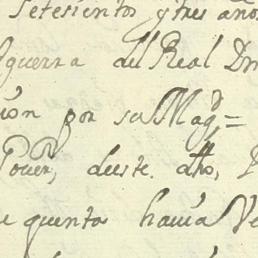 Setesientos y tres años
guerra del Real D
ión por su Magd =
Poder, deste dho,
e quenta havia Ve